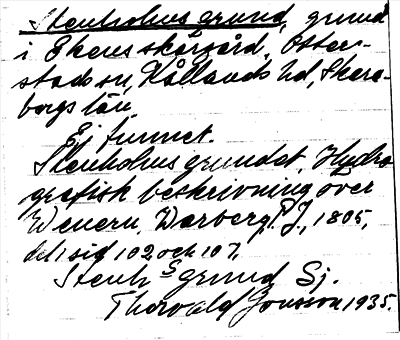 Stenholms grund, grund
i Ekens skärgård, Otter-
stads sn, Kållands hd, Skara-
borgs län.
Ej funnet.
Stenholms grundet, Hydro
grafisk beskrivning över
Wenern, Warberg P. J., 1805,
del 1 sid 102 och 107.
Stenh S grund Sj.
Thorvald Jonsson 1935.